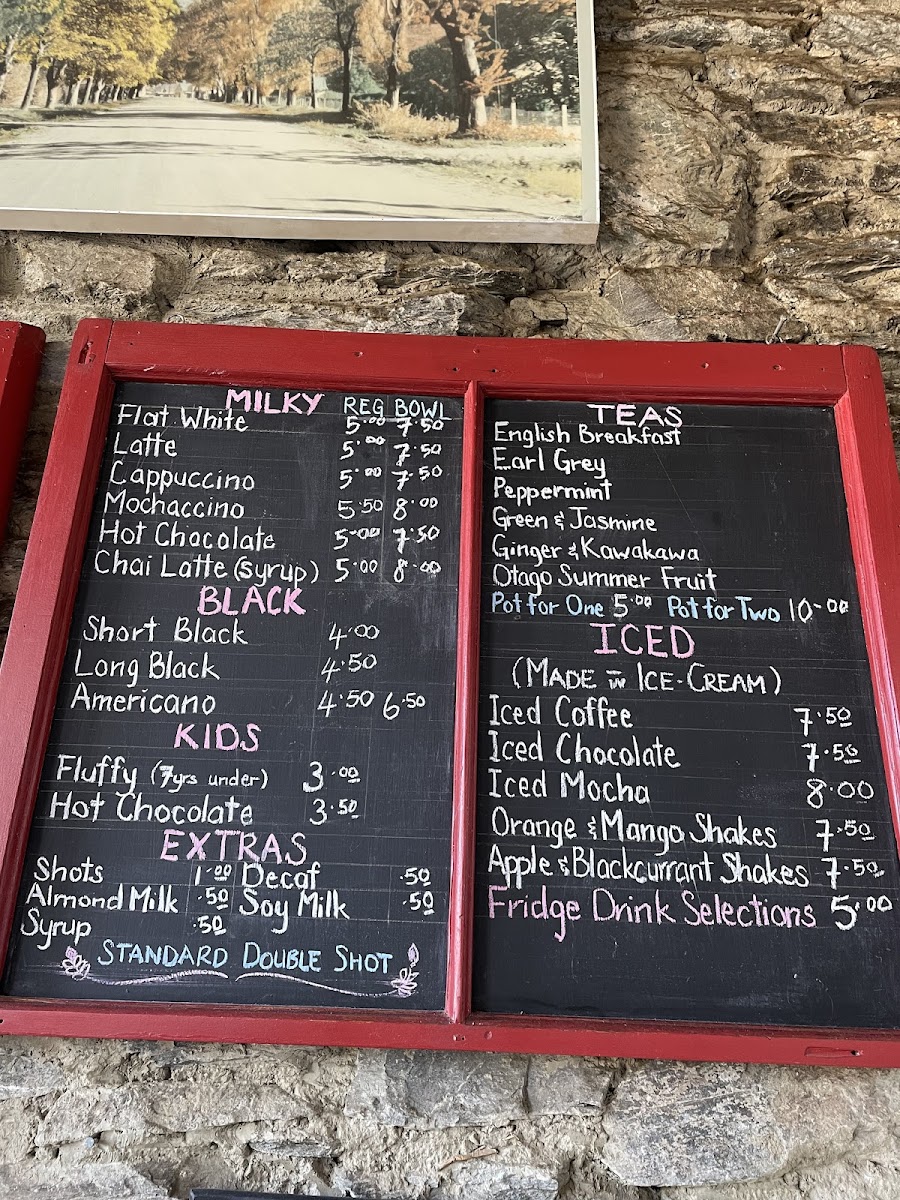 MILKY REG BOWL
Flat White 5.00 7.50
Latte 5.00 7.50
Cappuccino 5.00 7.50
Mochaccino 5.50 8.00
Hot Chocolate 5.00 7.50
Chai Latte (syrup) 5.00 8.00
BLACK
Short Black 4.00
Long Black 4.50
Americano 4.50 6.50
KIDS
Fluffy (7yrs under) 3.00
Hot Chocolate 3.50
EXTRAS
Shots 1.00 Decaf .50
Almond Milk .50 Soy Milk .50
Syrup .50
STANDARD DOUBLE SHOT
TEAS
English Breakfast
Earl Grey
Peppermint
Green & Jasmine
Ginger & Kawakawa
Otago Summer Fruit
Pot for One 5.00 Pot for Two 10-00
ICED
(MADE IN ICE-CREAM)
Iced Coffee 7.50
Iced Chocolate 7.50
Iced Mocha 8.00
Orange & Mango Shakes 7.50
Apple & Blackcurrant Shakes 7.50
Fridge Drink Selections 5.00